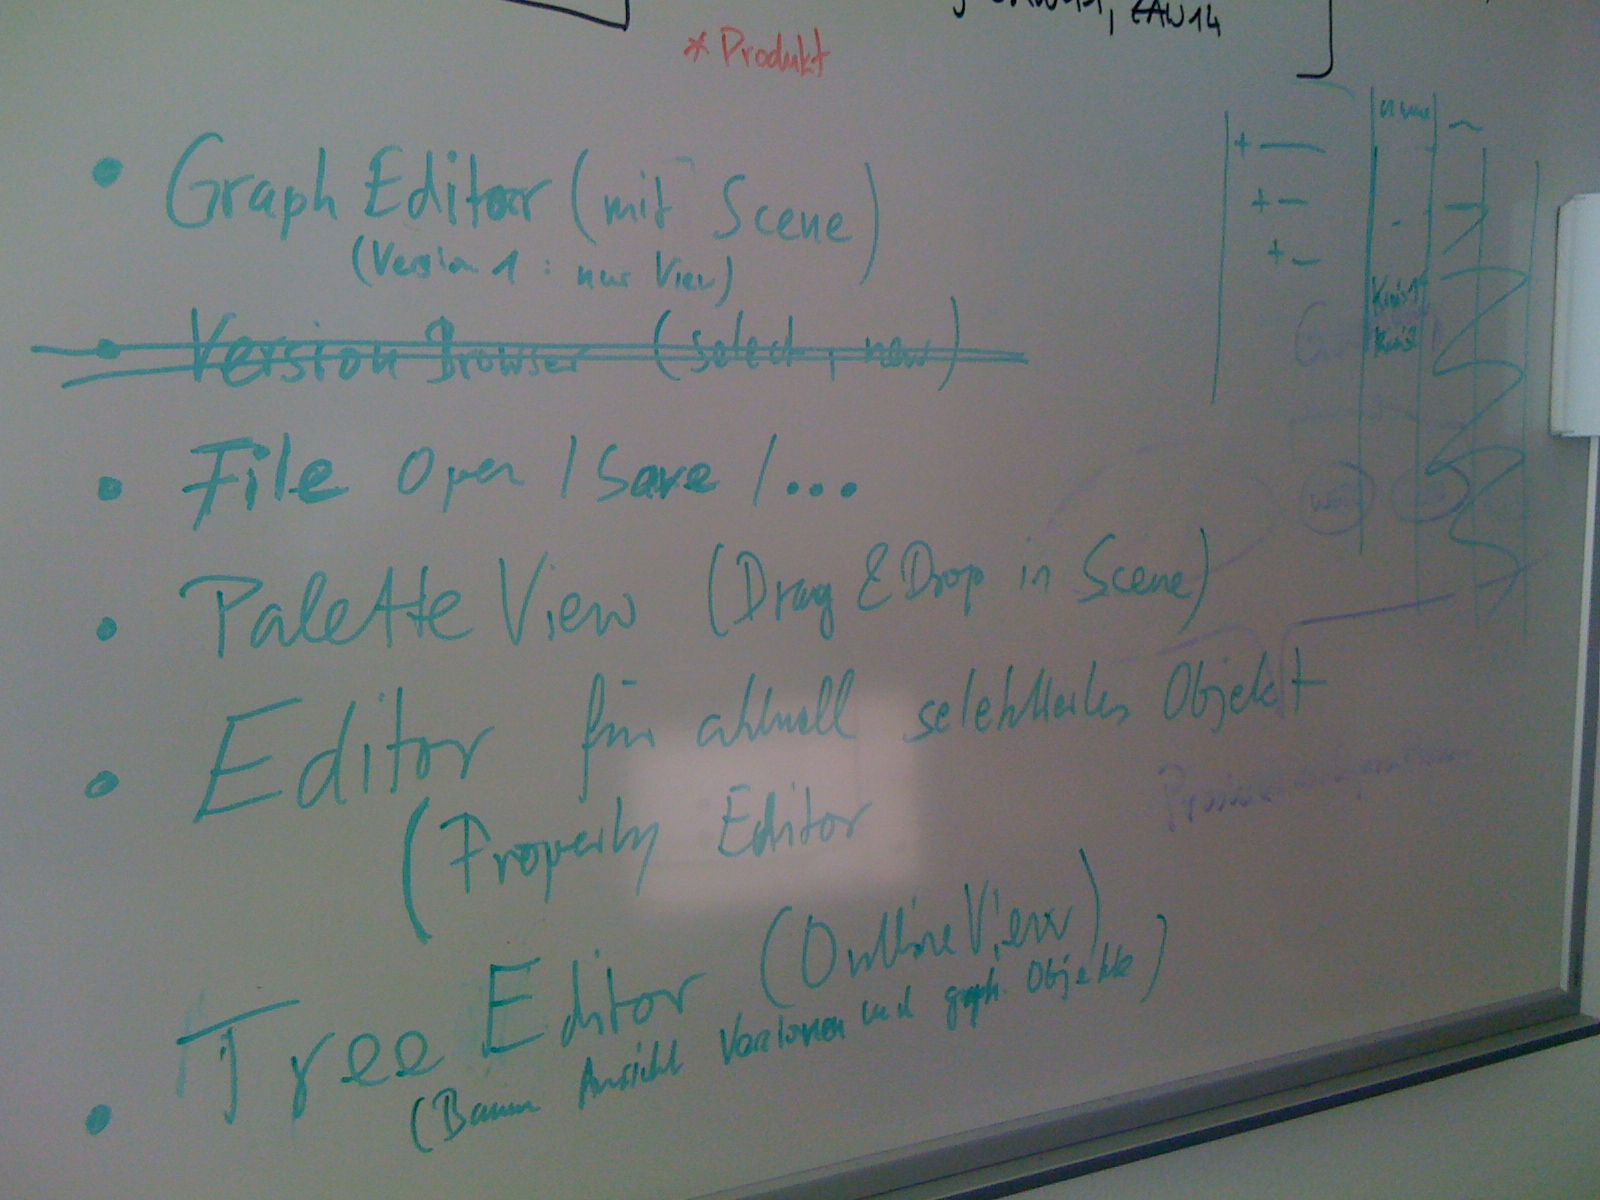 ZAW14
* Produkt
• Graph Editor (mit Scene)
(Version 1 : nur View)
• Version Browser (select, new)
• File Open / Save / ...
• Palette View (Drag & Drop in Scene)
• Editor für aktuell selektiertes Objekt
(Property Editor
• Tree Editor (OutlineView)
(Baum Ansicht Versionen und graph. Objekte)
name
Kreis1
Kreis2